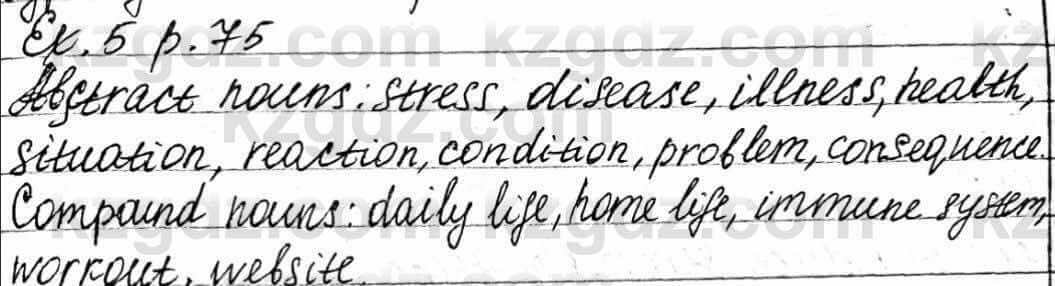 Ex. 5 p. 75
Abstract nouns: stress, disease, illness, health,
situation, reaction, condition, problem, consequence.
Compound nouns: daily life, home life, immune system,
workout, website.